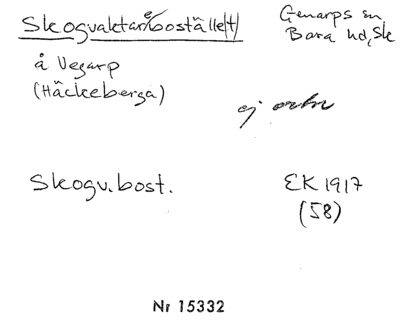 Skogvaktarebostället
Genarps sn
Bara hd, Sk
å Vegarp
(Häckeberga)
ej ortn
Skogv.bost.
EK 1917
(58)
Nr 15332